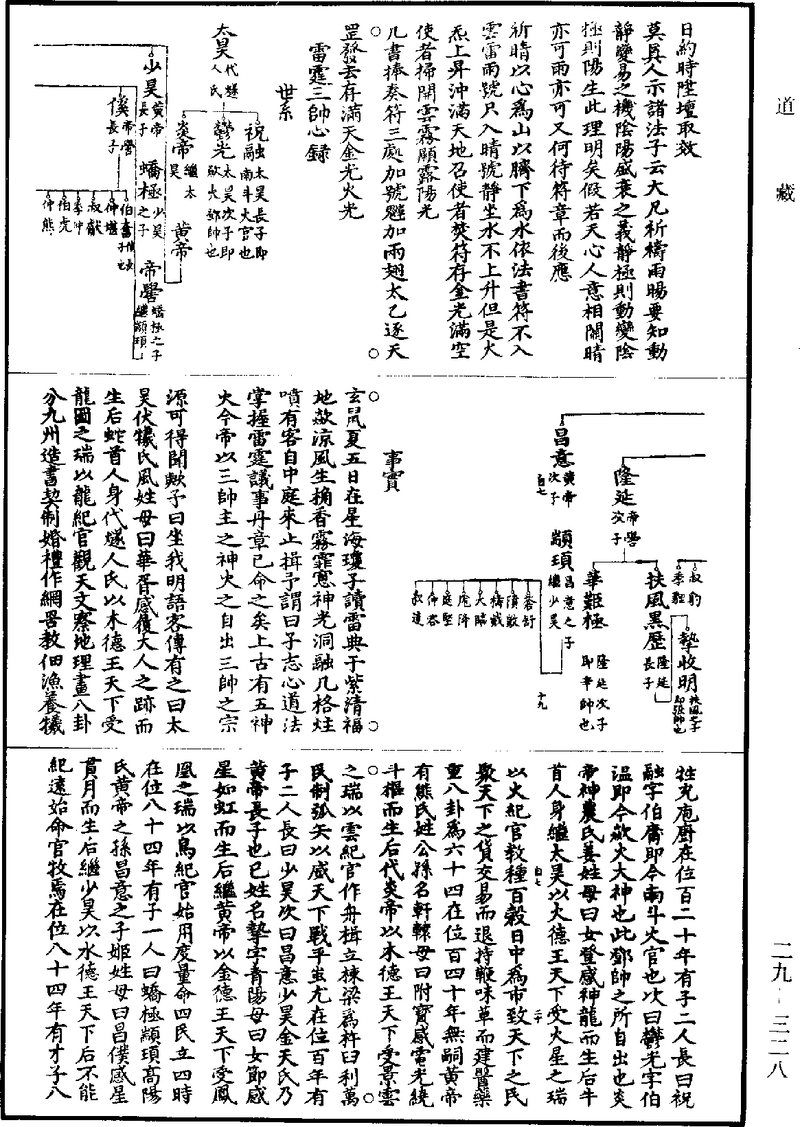 道藏
日約時陞壇取效
莫真人示諸法子云大凡祈禱雨暘要知動
靜變易之機陰陽盛衰之義靜極則動變陰
極則陽生此理明矣假若天心人意相關晴
亦可雨亦可又何待符章而後應
祈晴以心為山以臍下為水依法書符不入
雲雷雨號只入晴號靜坐水不上升但是火
炁上昇沖滿天地召使者焚符存金光滿空
使者掃開雲霧顯露陽光
几書捧奏符三處加號魒加兩翅太乙逐天
罡發去存滿天金光火光
雷霆三帥心錄
世系
太昊代燧人氏
祝融太昊長子即南斗火官也
鬱光太昊次子即欻火鄧帥也
炎帝繼太昊
黃帝
少昊黃帝長子
蟜極少昊之子
帝嚳蟜極之子繼顓頊
俟帝嚳長子
伯奮
仲堪
叔獻
季仲
伯虎
仲熊
叔豹
季貍
昌意黃帝次子
顓頊昌意之子繼少昊
隆延帝嚳次子
扶風黑歷隆延長子
摯收明扶風之子即張帥也
華艱極隆延次子即辛帥也
蒼舒
隤敳
檮戭
大臨
尨降
庭堅
仲容
叔達
白七
十九
事實
玄鼠夏五日在星海瓊子讀雷典于紫清福
地欻涼風生桷香霧霏窓神光洞融几格炷
噴有客自中庭來止揖予謂曰子志心道法
掌握雷霆議事丹章已命之矣上古有五神
火今帝以三帥主之神火之自出三帥之宗
源可得聞歟子曰坐我明語客傳有之曰太
昊伏犧氏風姓母曰華胥感履大人之跡而
生后蛇首人身代燧人氏以木德王天下受
龍圖之瑞以龍紀官觀天文察地理畫八卦
分九州造書契制婚禮作網罟教佃漁養犧
牲充庖廚在位百二十年有子二人長曰祝
融字伯庸即今南斗火官也次曰鬱光字伯
溫即今欻火大神也此鄧帥之所自出也炎
帝神農氏姜姓母曰女登感神龍而生后牛
首人身繼太昊以火德王天下受火星之瑞
白七
二十
以火紀官教種百穀日中為市致天下之民
聚天下之貨交易而退持鞭味草而建醫藥
重八卦為六十四在位百四十年無嗣黃帝
有熊氏姓公孫名軒轅母曰附寶感電光繞
斗樞而生后代炎帝以木德王天下受景雲
之瑞以雲紀官作舟楫立棟梁為杵臼利萬
民制弧矢以威天下戰平蚩尤在位百年有
子二人長曰少昊次曰昌意少昊金天氏乃
黃帝長子也己姓名摯字青陽母曰女節感
星如虹而生后繼黃帝以金德王天下受鳳
凰之瑞以鳥紀官始用度量命四民立四時
在位八十四年有子一人曰蟜極顓頊高陽
氏黃帝之孫昌意之子姬姓母曰昌僕感星
貫月而生后繼少昊以水德王天下后不能
紀遠始命官牧焉在位八十四年有才子八
二九-三二八